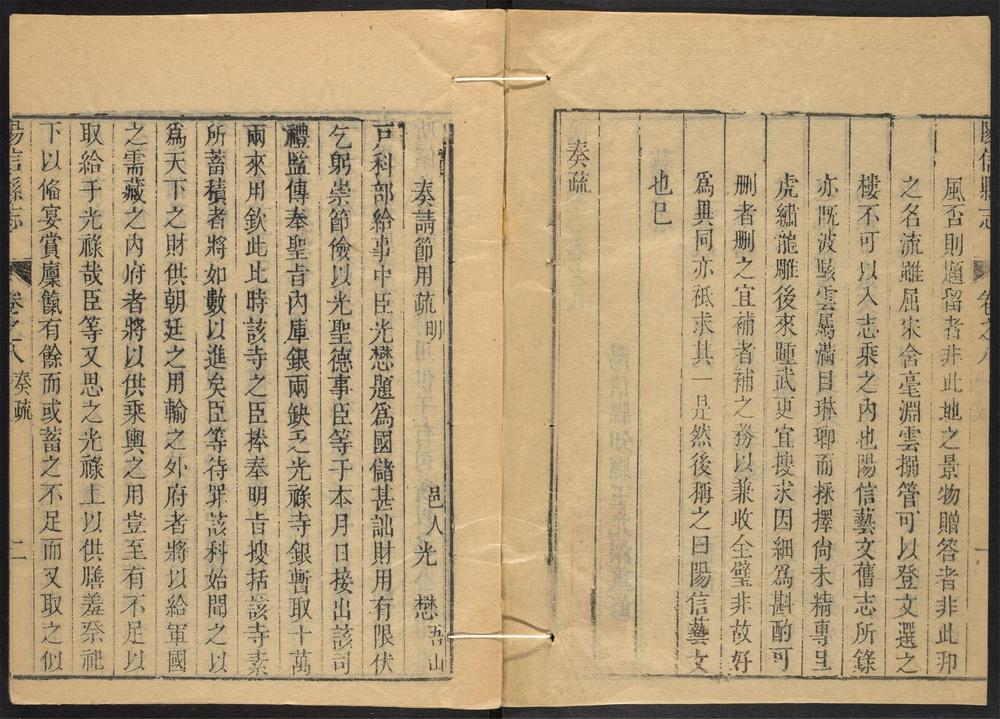 陽信縣志 卷之八 一
風否則題留者非此地之景物贈答者非此邦
之名流雖屈宋含毫淵雲搦管可以登文選之
樓不可以入志乘之內也陽信藝文舊志所錄
亦既波駭雲屬滿目琳瑯而採擇尙未精專且
虎繡龍雕後來踵武更宜搜求因細爲斟酌可
删者删之宜補者補之務以兼收全璧非故好
爲異同亦祇求其一是然後稱之曰陽信藝文
也巳
奏疏
奏請節用疏明 邑人光 懋吾山
戸科部給事中臣光懋題爲國儲甚詘財用有限伏
乞躬崇節儉以光聖德事臣等于本月日接出該司
禮監傳奉聖旨內庫銀兩缺乏光祿寺銀暫取十萬
兩來用欽此比時該寺之臣捧奉明旨搜括該寺素
所蓄積者將如數以進矣臣等待罪該科始聞之以
爲天下之財供朝廷之用輸之外府者將以給軍國
之需藏之內府者將以供乘輿之用豈至有不足以
取給于光祿哉臣等又思之光祿上以供膳羞祭祀
下以備宴賞廩餼有餘而或蓄之不足而又取之似
陽信縣志 卷之八 奏疏 二